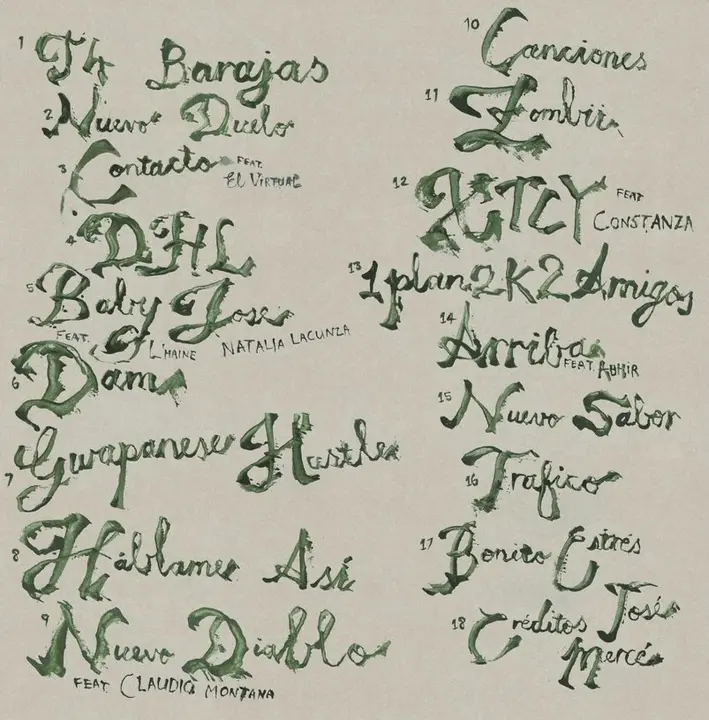 1 T4 Barajas
2 Nuevo Duelo
3 Contacto FEAT. EL VIRTUAL
4 DHL
5 Baby Jose
FEAT. L'HAINE NATALIA LACUNZA
6 Dame
7 Guapanese Hustle
8 Háblame Así
9 Nuevo Diablo
FEAT. CLAUDIO MONTANA
10 Canciones
11 Zombii
12 XTCY FEAT CONSTANZA
13 1plan2K2Amigos
14 Arriba
FEAT. RUHIR
15 Nuevo Sabor
16 Tráfico
17 Bonito Estrés
18 Créditos José
Mercé